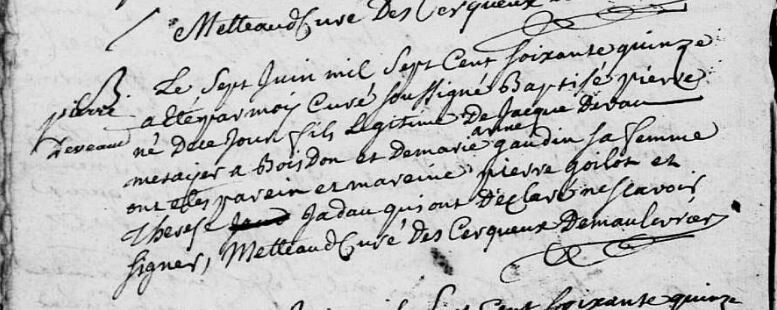 Metteaud Curé Des Cerqueux
B
pierre
Deveaud
Le Sept Juin mil Sept Cent soixante quinze
a été par moy Curé soussigné Baptisé pierre
né De ce Jour fils Legitime De Jacque Devau
metayer a Boisdon et De marie anne gaudin sa femme
ont etés parein et mareine pierre goilot et
Therese Jadau qui ont Declaré ne scavoir
signer, Metteaud Curé Des Cerqueux De maulevrier
Sept Cent soixante quinze